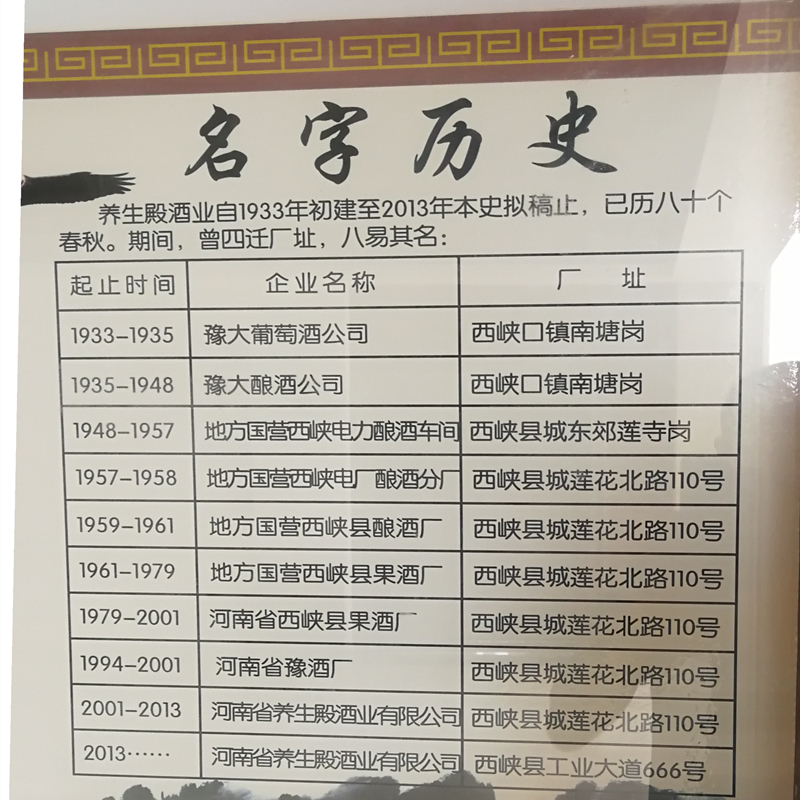 名字历史
养生殿酒业自1933年初建至2013年本史拟稿止，已历八十个
春秋。期间，曾四迁厂址，八易其名：
起止时间 企业名称 厂 址
1933-1935 豫大葡萄酒公司 西峡口镇南塘岗
1935-1948 豫大酿酒公司 西峡口镇南塘岗
1948-1957 地方国营西峡电力酿酒车间 西峡县城东郊莲寺岗
1957-1958 地方国营西峡电厂酿酒分厂 西峡县城莲花北路110号
1959-1961 地方国营西峡县酿酒厂 西峡县城莲花北路110号
1961-1979 地方国营西峡县果酒厂 西峡县城莲花北路110号
1979-2001 河南省西峡县果酒厂 西峡县城莲花北路110号
1994-2001 河南省豫酒厂 西峡县城莲花北路110号
2001-2013 河南省养生殿酒业有限公司 西峡县城莲花北路110号
2013…… 河南省养生殿酒业有限公司 西峡县工业大道666号